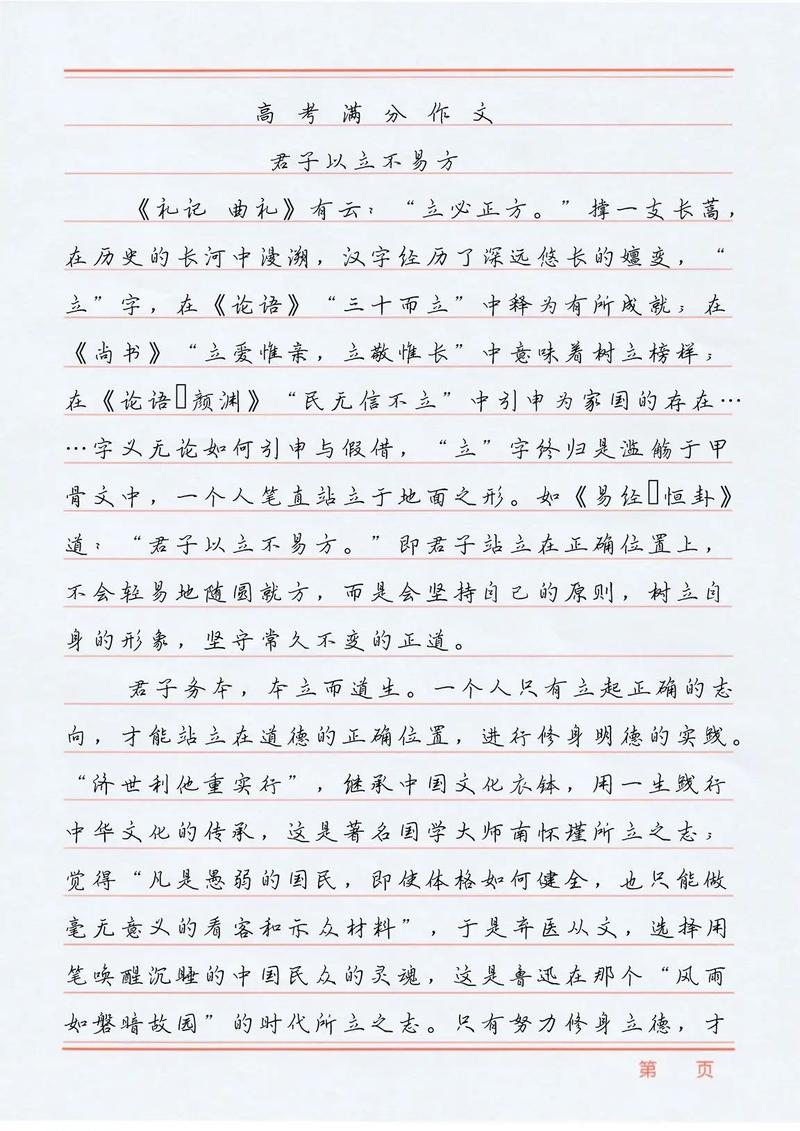 高考满分作文
君子以立不易方
《礼记 曲礼》有云：“立必正方。”撑一支长蒿，
在历史的长河中漫溯，汉字经历了深远悠长的嬗变，“
立”字，在《论语》“三十而立”中释为有所成就；在
《尚书》“立爱惟亲，立敬惟长”中意味着树立榜样；
在《论语▯颜渊》“民无信不立”中引申为家国的存在…
…字义无论如何引申与假借，“立”字终归是滥觞于甲
骨文中，一个人笔直站立于地面之形。如《易经▯恒卦》
道：“君子以立不易方。”即君子站立在正确位置上，
不会轻易地随圆就方，而是会坚持自己的原则，树立自
身的形象，坚守常久不变的正道。
君子务本，本立而道生。一个人只有立起正确的志
向，才能站立在道德的正确位置，进行修身明德的实践。
“济世利他重实行”，继承中国文化衣钵，用一生践行
中华文化的传承，这是著名国学大师南怀瑾所立之志；
觉得“凡是愚弱的国民，即使体格如何健全，也只能做
毫无意义的看客和示众材料”，于是弃医从文，选择用
笔唤醒沉睡的中国民众的灵魂，这是鲁迅在那个“风雨
如磐暗故园”的时代所立之志。只有努力修身立德，才
第 页